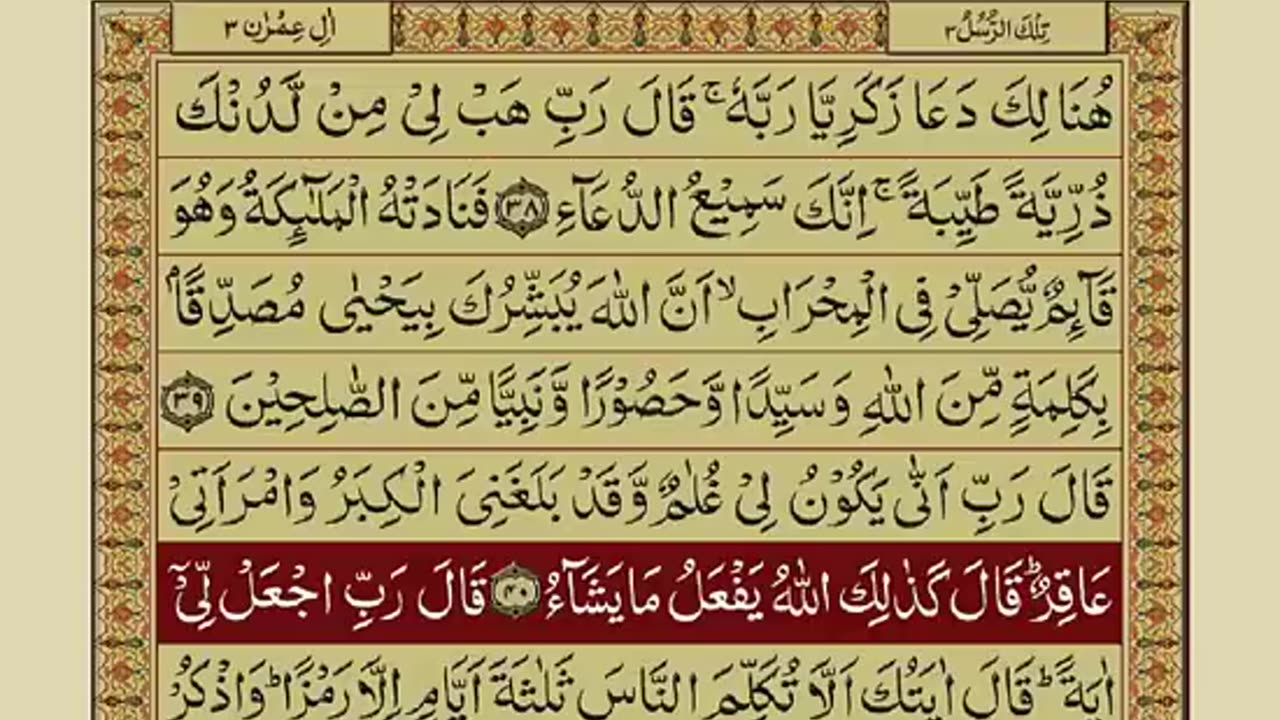 تِلْكَ الرُّسُلُ ٣
اٰلِ عِمْرٰن ٣
هُنَا لِكَ دَعَا زَكَرِيَّا رَبَّهٗ ۚ قَالَ رَبِّ هَبْ لِیْ مِنْ لَّدُنْكَ
ذُرِّيَّةً طَيِّبَةً ۚ اِنَّكَ سَمِيْعُ الدُّعَآءِ ٣٨ فَنَادَتْهُ الْمَلٰٓئِكَةُ وَهُوَ
قَآئِمٌ يُّصَلِّیْ فِی الْمِحْرَابِ ۙ اَنَّ اللّٰهَ يُبَشِّرُكَ بِيَحْيٰی مُصَدِّقًاۢ
بِكَلِمَةٍ مِّنَ اللّٰهِ وَسَيِّدًا وَّحَصُوْرًا وَّنَبِيًّا مِّنَ الصّٰلِحِيْنَ ٣٩
قَالَ رَبِّ اَنّٰی يَكُوْنُ لِیْ غُلٰمٌ وَّقَدْ بَلَغَنِیَ الْكِبَرُ وَامْرَاَتِیْ
عَاقِرٌ ؕ قَالَ كَذٰلِكَ اللّٰهُ يَفْعَلُ مَا يَشَآءُ ٤٠ قَالَ رَبِّ اجْعَلْ لِّیْۤ
اٰيَةً ؕ قَالَ اٰيَتُكَ اَلَّا تُكَلِّمَ النَّاسَ ثَلٰثَةَ اَيَّامٍ اِلَّا رَمْزًا ؕ وَاذْكُرْ